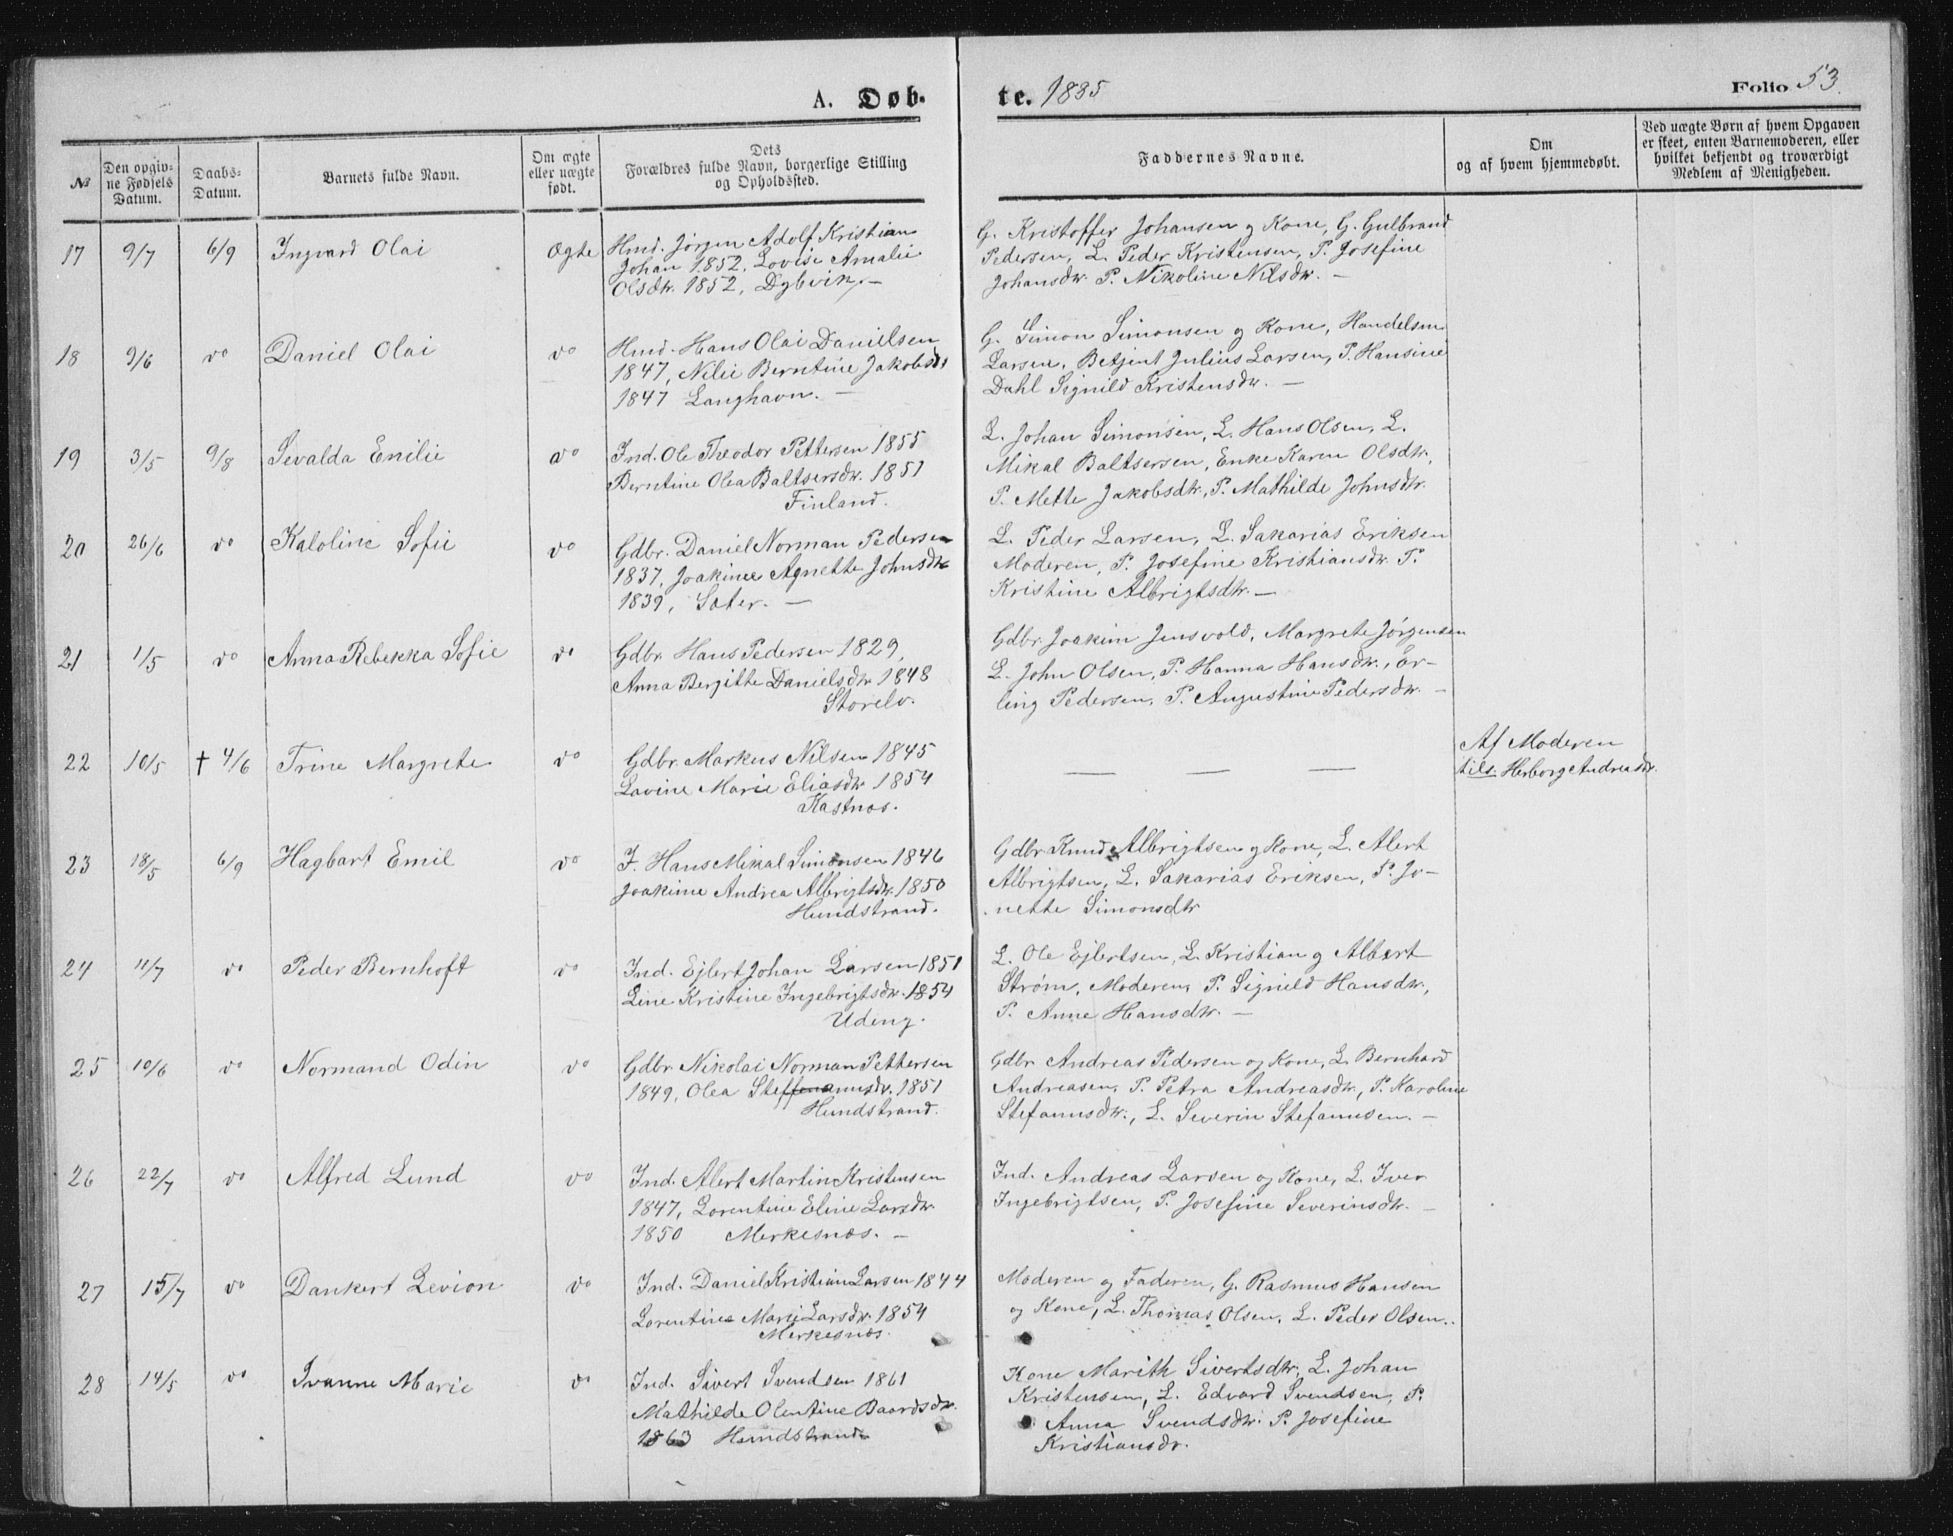 A. Døb-
te. 1885
Folio 53.
№
Den opgiv-
ne Fødsels
Datum.
Daabs-
Datum.
Barnets fulde Navn.
Om ægte
eller uægte
født.
Dets
Forældres fulde Navn, borgerlige Stilling
og Opholdssted.
Faddernes Navne.
Om
og af hvem hjemmedøbt.
Ved uægte Børn af hvem Opgaven
er skeet, enten Barnemoderen, eller
hvilket bekjendt og troværdigt
Medlem af Menigheden.
17 9/7 6/9 Ingvard Olai Ægte
Hmd. Jørgen Adolf Kristian
Johan 1852, Lovise Amalie
Olsdtr. 1852, Dybvik. —
G. Kristoffer Johansen og Kone, G. Gulbrand
Pedersen, L. Peder Kristensen, P. Josefine
Johansdtr. P. Nikoline Nilsdtr. —
18 9/6 do Daniel Olai do
Hmd. Hans Olai Danielsen
1847, Nilie Berntine Jakobsdtr
1847 Langhavn. —
G. Simon Simonsen og Kone, Handelsm
Larsen, Betjent Julius Larsen, P. Hansine
Dahl Signild Kristensdtr. —
19 3/5 9/8 Sevalda Emilie do
Ind. Ole Theodor Pettersen 1855
Berntine Olea Baltsersdtr. 1851
Finland.
L. Johan Simonsen, L. Hans Olsen, L.
Mikal Baltsersen, Enke Karen Olsdtr.
P. Mette Jakobsdtr, P. Mathilde Johnsdtr.
20 26/6 do Kaloline Sofie do
Gdbr. Daniel Norman Pedersen
1837, Joakinee Agnette Johnsdtr
1839, Sater. —
L. Peder Larsen, L. Sakarias Eriksen
Moderen, P. Josefine Kristiansdtr P.
Kristine Albrigtsdtr. —
21 1/5 do Anna Rebekka Sofie do
Gdbr. Hans Pedersen 1829,
Anna Bergitte Danielsdtr 1848
Storelv.
Gdbr Joakim Jensvold, Margrete Jørgensen
L. John Olsen, P. Hanna Hansdtr., Er-
ling Pedersen, P. Augustine Pedersdtr. —
22 10/5 † 4/6 Trine Margrete do
Gdbr. Markus Nilsen 1845
Lavine Marie Eliasdtr 1854
Kastnæs.
— — —
Af Moderen
tils. Herborg Andreasdtr.
23 18/5 6/9 Hagbart Emil do
I. Hans Mikal Simonsen 1846
Joakime Andrea Albrigtsdtr. 1850
Hundstrand.
Gdbr Knud Albrigtsen og Kone, L. Alert
Albrigtsen, L. Sakarias Eriksen, P. Jo-
nette Simonsdtr
24 11/7 do Peder Bernhoft do
Ind. Ejlert Johan Larsen 1851
Line Kristine Ingebrigtsdtr. 1854
Udeng.
L. Ole Ejlertsen, L. Kristian og Albert
Strøm, Moderen, P. Signild Hansdtr,
P. Anne Hansdtr. —
25 10/6 do Normand Odin do
Gdbr. Nikolai Norman Pettersen
1849, Olea Steffensmnsdtr. 1851
Hundstrand.
Gdbr. Andreas Pedersen og Kone, L. Bernhard
Andreasen, P. Petra Andreasdtr., P. Karoline
Stefannsdtr., L. Severin Stefannsen. —
26 22/7 do Alfred Lund do
Ind. Alert Martin Kristensen
1847, Lorentine Eline Larsdtr.
1850 Merkesnæs. —
Ind. Andreas Larsen og Kone, L. Iver
Ingebrigtsen, P. Josefine Severinsdtr. —
27 15/7 do Dankert Levion do
Ind. Daniel Kristian Larsen 1844
Lorentine Marie Larsdtr. 1854
Merkesnæs.
Moderen og Faderen, G. Rasmus Hansen
og Kone, L. Thomas Olsen, L. Peder Olsen.
28 14/5 do Ivanne Marie do
Ind. Sivert Svendsen 1861
Mathilde Olentine Baardsdtr.
1863 Hundstrand
Kone Marith Sivertsdtr., L. Johan
Kristensen, L. Edvard Svendsen, P.
Anna Svendsdtr. P. Josefine
Kristiansdr.